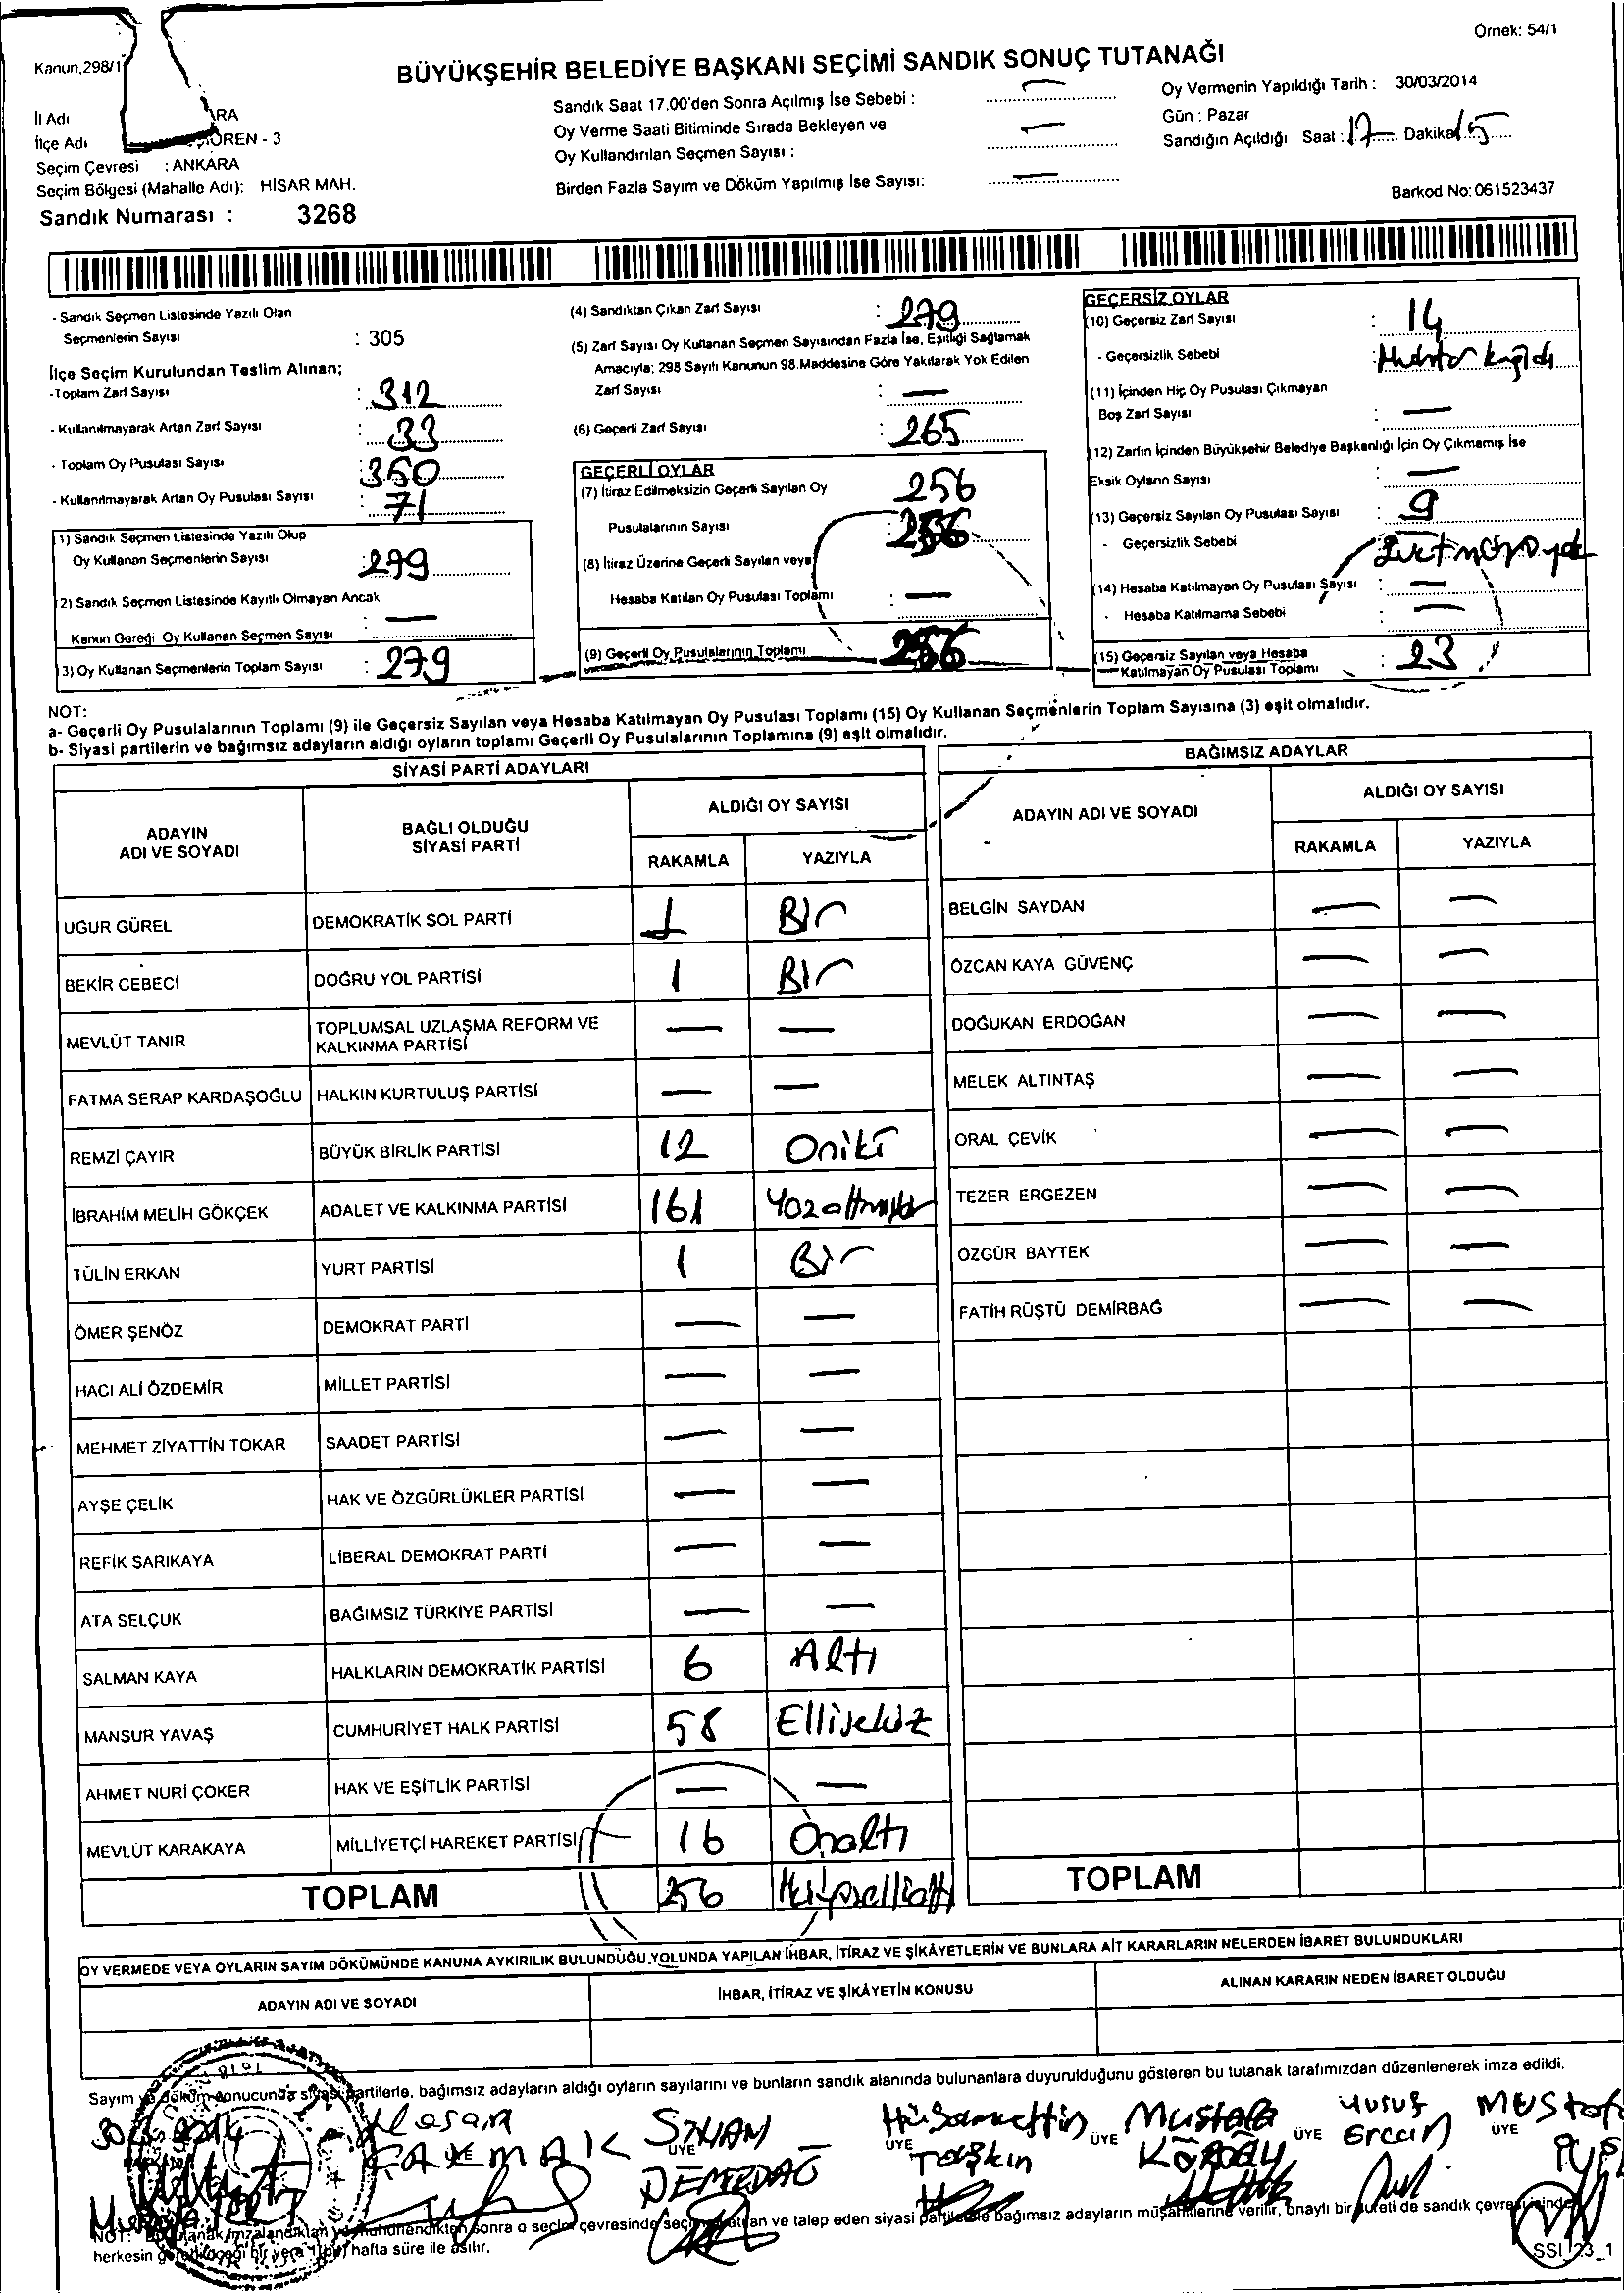 Örnek: 54/1
Kanun,298/1
BÜYÜKŞEHİR BELEDİYE BAŞKANI SEÇİMİ SANDIK SONUÇ TUTANAĞI
İl Adı ARA
İlçe Adı ÖREN - 3
Seçim Çevresi : ANKARA
Seçim Bölgesi (Mahalle Adı): HİSAR MAH.
Sandık Numarası : 3268
Sandık Saat 17.00'den Sonra Açılmış İse Sebebi : —
Oy Verme Saati Bitiminde Sırada Bekleyen ve
Oy Kullandırılan Seçmen Sayısı : —
Birden Fazla Sayım ve Döküm Yapılmış İse Sayısı: —
Oy Vermenin Yapıldığı Tarih : 30/03/2014
Gün : Pazar
Sandığın Açıldığı Saat : 17 Dakika 15
Barkod No: 061523437
- Sandık Seçmen Listesinde Yazılı Olan
Seçmenlerin Sayısı : 305
İlçe Seçim Kurulundan Teslim Alınan;
-Toplam Zarf Sayısı : 312
- Kullanılmayarak Artan Zarf Sayısı : 33
- Toplam Oy Pusulası Sayısı : 350
- Kullanılmayarak Artan Oy Pusulası Sayısı : 71
1) Sandık Seçmen Listesinde Yazılı Olup
Oy Kullanan Seçmenlerin Sayısı : 279
2) Sandık Seçmen Listesinde Kayıtlı Olmayan Ancak
Kanun Gereği Oy Kullanan Seçmen Sayısı : —
3) Oy Kullanan Seçmenlerin Toplam Sayısı : 279
(4) Sandıktan Çıkan Zarf Sayısı : 279
(5) Zarf Sayısı Oy Kullanan Seçmen Sayısından Fazla İse, Eşitliği Sağlamak
Amacıyla; 298 Sayılı Kanunun 98.Maddesine Göre Yakılarak Yok Edilen
Zarf Sayısı : —
(6) Geçerli Zarf Sayısı : 265
GEÇERLİ OYLAR
(7) İtiraz Edilmeksizin Geçerli Sayılan Oy 256
Pusulalarının Sayısı : 256
(8) İtiraz Üzerine Geçerli Sayılan veya
Hesaba Katılan Oy Pusulası Toplamı : —
(9) Geçerli Oy Pusulalarının Toplamı 256
GEÇERSİZ OYLAR
(10) Geçersiz Zarf Sayısı : 14
- Geçersizlik Sebebi : Muhtar kağıdı
(11) İçinden Hiç Oy Pusulası Çıkmayan
Boş Zarf Sayısı : —
(12) Zarfın İçinden Büyükşehir Belediye Başkanlığı İçin Oy Çıkmamış İse
Eksik Oyların Sayısı : —
(13) Geçersiz Sayılan Oy Pusulası Sayısı : 9
- Geçersizlik Sebebi
(14) Hesaba Katılmayan Oy Pusulası Sayısı : —
- Hesaba Katılmama Sebebi : —
(15) Geçersiz Sayılan veya Hesaba
Katılmayan Oy Pusulası Toplamı : 23
NOT:
a- Geçerli Oy Pusulalarının Toplamı (9) ile Geçersiz Sayılan veya Hesaba Katılmayan Oy Pusulası Toplamı (15) Oy Kullanan Seçmenlerin Toplam Sayısına (3) eşit olmalıdır.
b- Siyasi partilerin ve bağımsız adayların aldığı oyların toplamı Geçerli Oy Pusulalarının Toplamına (9) eşit olmalıdır.
SİYASİ PARTİ ADAYLARI
ADAYIN ADI VE SOYADI BAĞLI OLDUĞU SİYASİ PARTİ ALDIĞI OY SAYISI
RAKAMLA YAZIYLA
UĞUR GÜREL DEMOKRATİK SOL PARTİ 1 Bir
BEKİR CEBECİ DOĞRU YOL PARTİSİ 1 Bir
MEVLÜT TANIR TOPLUMSAL UZLAŞMA REFORM VE KALKINMA PARTİSİ — —
FATMA SERAP KARDAŞOĞLU HALKIN KURTULUŞ PARTİSİ — —
REMZİ ÇAYIR BÜYÜK BİRLİK PARTİSİ 12 Oniki
İBRAHİM MELİH GÖKÇEK ADALET VE KALKINMA PARTİSİ 161
TÜLİN ERKAN YURT PARTİSİ 1 Bir
ÖMER ŞENÖZ DEMOKRAT PARTİ — —
HACI ALİ ÖZDEMİR MİLLET PARTİSİ — —
MEHMET ZİYATTİN TOKAR SAADET PARTİSİ — —
AYŞE ÇELİK HAK VE ÖZGÜRLÜKLER PARTİSİ — —
REFİK SARIKAYA LİBERAL DEMOKRAT PARTİ — —
ATA SELÇUK BAĞIMSIZ TÜRKİYE PARTİSİ — —
SALMAN KAYA HALKLARIN DEMOKRATİK PARTİSİ 6 Altı
MANSUR YAVAŞ CUMHURİYET HALK PARTİSİ 58 Ellisekiz
AHMET NURİ ÇOKER HAK VE EŞİTLİK PARTİSİ — —
MEVLÜT KARAKAYA MİLLİYETÇİ HAREKET PARTİSİ 16 Onaltı
TOPLAM 256
BAĞIMSIZ ADAYLAR
ADAYIN ADI VE SOYADI ALDIĞI OY SAYISI
RAKAMLA YAZIYLA
BELGİN SAYDAN — —
ÖZCAN KAYA GÜVENÇ — —
DOĞUKAN ERDOĞAN — —
MELEK ALTINTAŞ — —
ORAL ÇEVİK — —
TEZER ERGEZEN — —
ÖZGÜR BAYTEK — —
FATİH RÜŞTÜ DEMİRBAĞ — —
TOPLAM
OY VERMEDE VEYA OYLARIN SAYIM DÖKÜMÜNDE KANUNA AYKIRILIK BULUNDUĞU YOLUNDA YAPILAN İHBAR, İTİRAZ VE ŞİKÂYETLERİN VE BUNLARA AİT KARARLARIN NELERDEN İBARET BULUNDUKLARI
ADAYIN ADI VE SOYADI İHBAR, İTİRAZ VE ŞİKÂYETİN KONUSU ALINAN KARARIN NEDEN İBARET OLDUĞU
Sayım ve döküm sonucunda siyasi partilerle, bağımsız adayların aldığı oyların sayılarını ve bunların sandık alanında bulunanlara duyurulduğunu gösteren bu tutanak tarafımızdan düzenlenerek imza edildi.
Hasan ÜYE ÜYE Hüsamettin ÜYE Mustafa ÜYE Yusuf ÜYE Mustafa
ÇAKMAK DEMİRDAĞ Taşkın Köroğlu Ercan
NOT: Bu tutanak imzalandıktan ve mühürlendikten sonra o seçim çevresinde seçime katılan ve talep eden siyasi partilerle bağımsız adayların müşahitlerine verilir, onaylı bir sureti de sandık çevresinde
herkesin görebileceği bir yere 1(bir) hafta süre ile asılır.
SSI_23_1